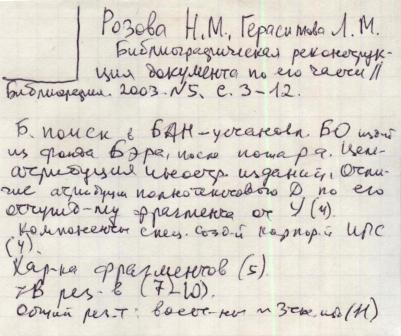 Розова Н.М., Герасимова Л.М.
Библиографическая реконструк-
ция документа по его части //
Библиография. 2003. №5. С. 3-12.
Б. поиск в БАН-установл. БО изд-й
из фонда Бэра, после пожара. Цель-
атрибуция иностр. изданий, Отли-
чие атрибуции полнотекстового Д по его
фрагмента от У (4).
Компоненты спец. созд-й картой ИПС
(4).
Хар-ка фрагментов (5).
рез-в (7-10).
Общий рез-т: